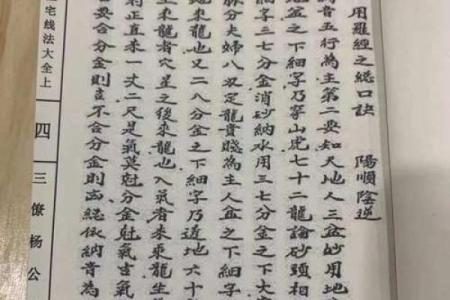 用羅經之總口訣 陽順陰逆
音五行為主第二要知天地人三盆妙用地
地盆之下細字乃穿山虎七十二龍論砂頭相
細字三七分金消砂納水用三七分金之下大
脉分夫婦八双定龍貴賤為主人盆之下細字
來龍也又二八分金之下細字乃近地六十
來龍者穴星之後來龍也入氣者來龍生
到正直來一丈二尺是氣莫尅分金尅氣吉氣
要合分金則吉不合分金則凶總依納音為
宅线法大全上
四
三僚杨公